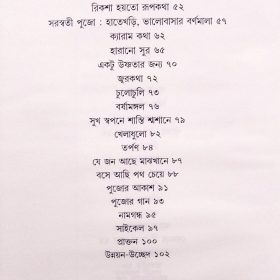 রিকশা হয়তো রূপকথা ৫২
সরস্বতী পুজো : হাতেখড়ি, ভালোবাসার বর্ণমালা ৫৭
ক্যারাম কথা ৬২
হারানো সুর ৬৫
একটু উষ্ণতার জন্য ৭০
জ্বরকথা ৭২
চুলোচুলি ৭৩
বর্ষামঙ্গল ৭৬
সুখ স্বপনে শান্তি শ্মশানে ৭৯
খেলাধুলো ৮২
তর্পণ ৮৪
যে জন আছে মাঝখানে ৮৭
বসে আছি পথ চেয়ে ৮৮
পুজোর আকাশ ৯১
পুজোর গান ৯৩
নামগন্ধ ৯৫
সাইকেল ৯৭
প্রাক্তন ১০০
উন্নয়ন-উচ্ছেদ ১০২